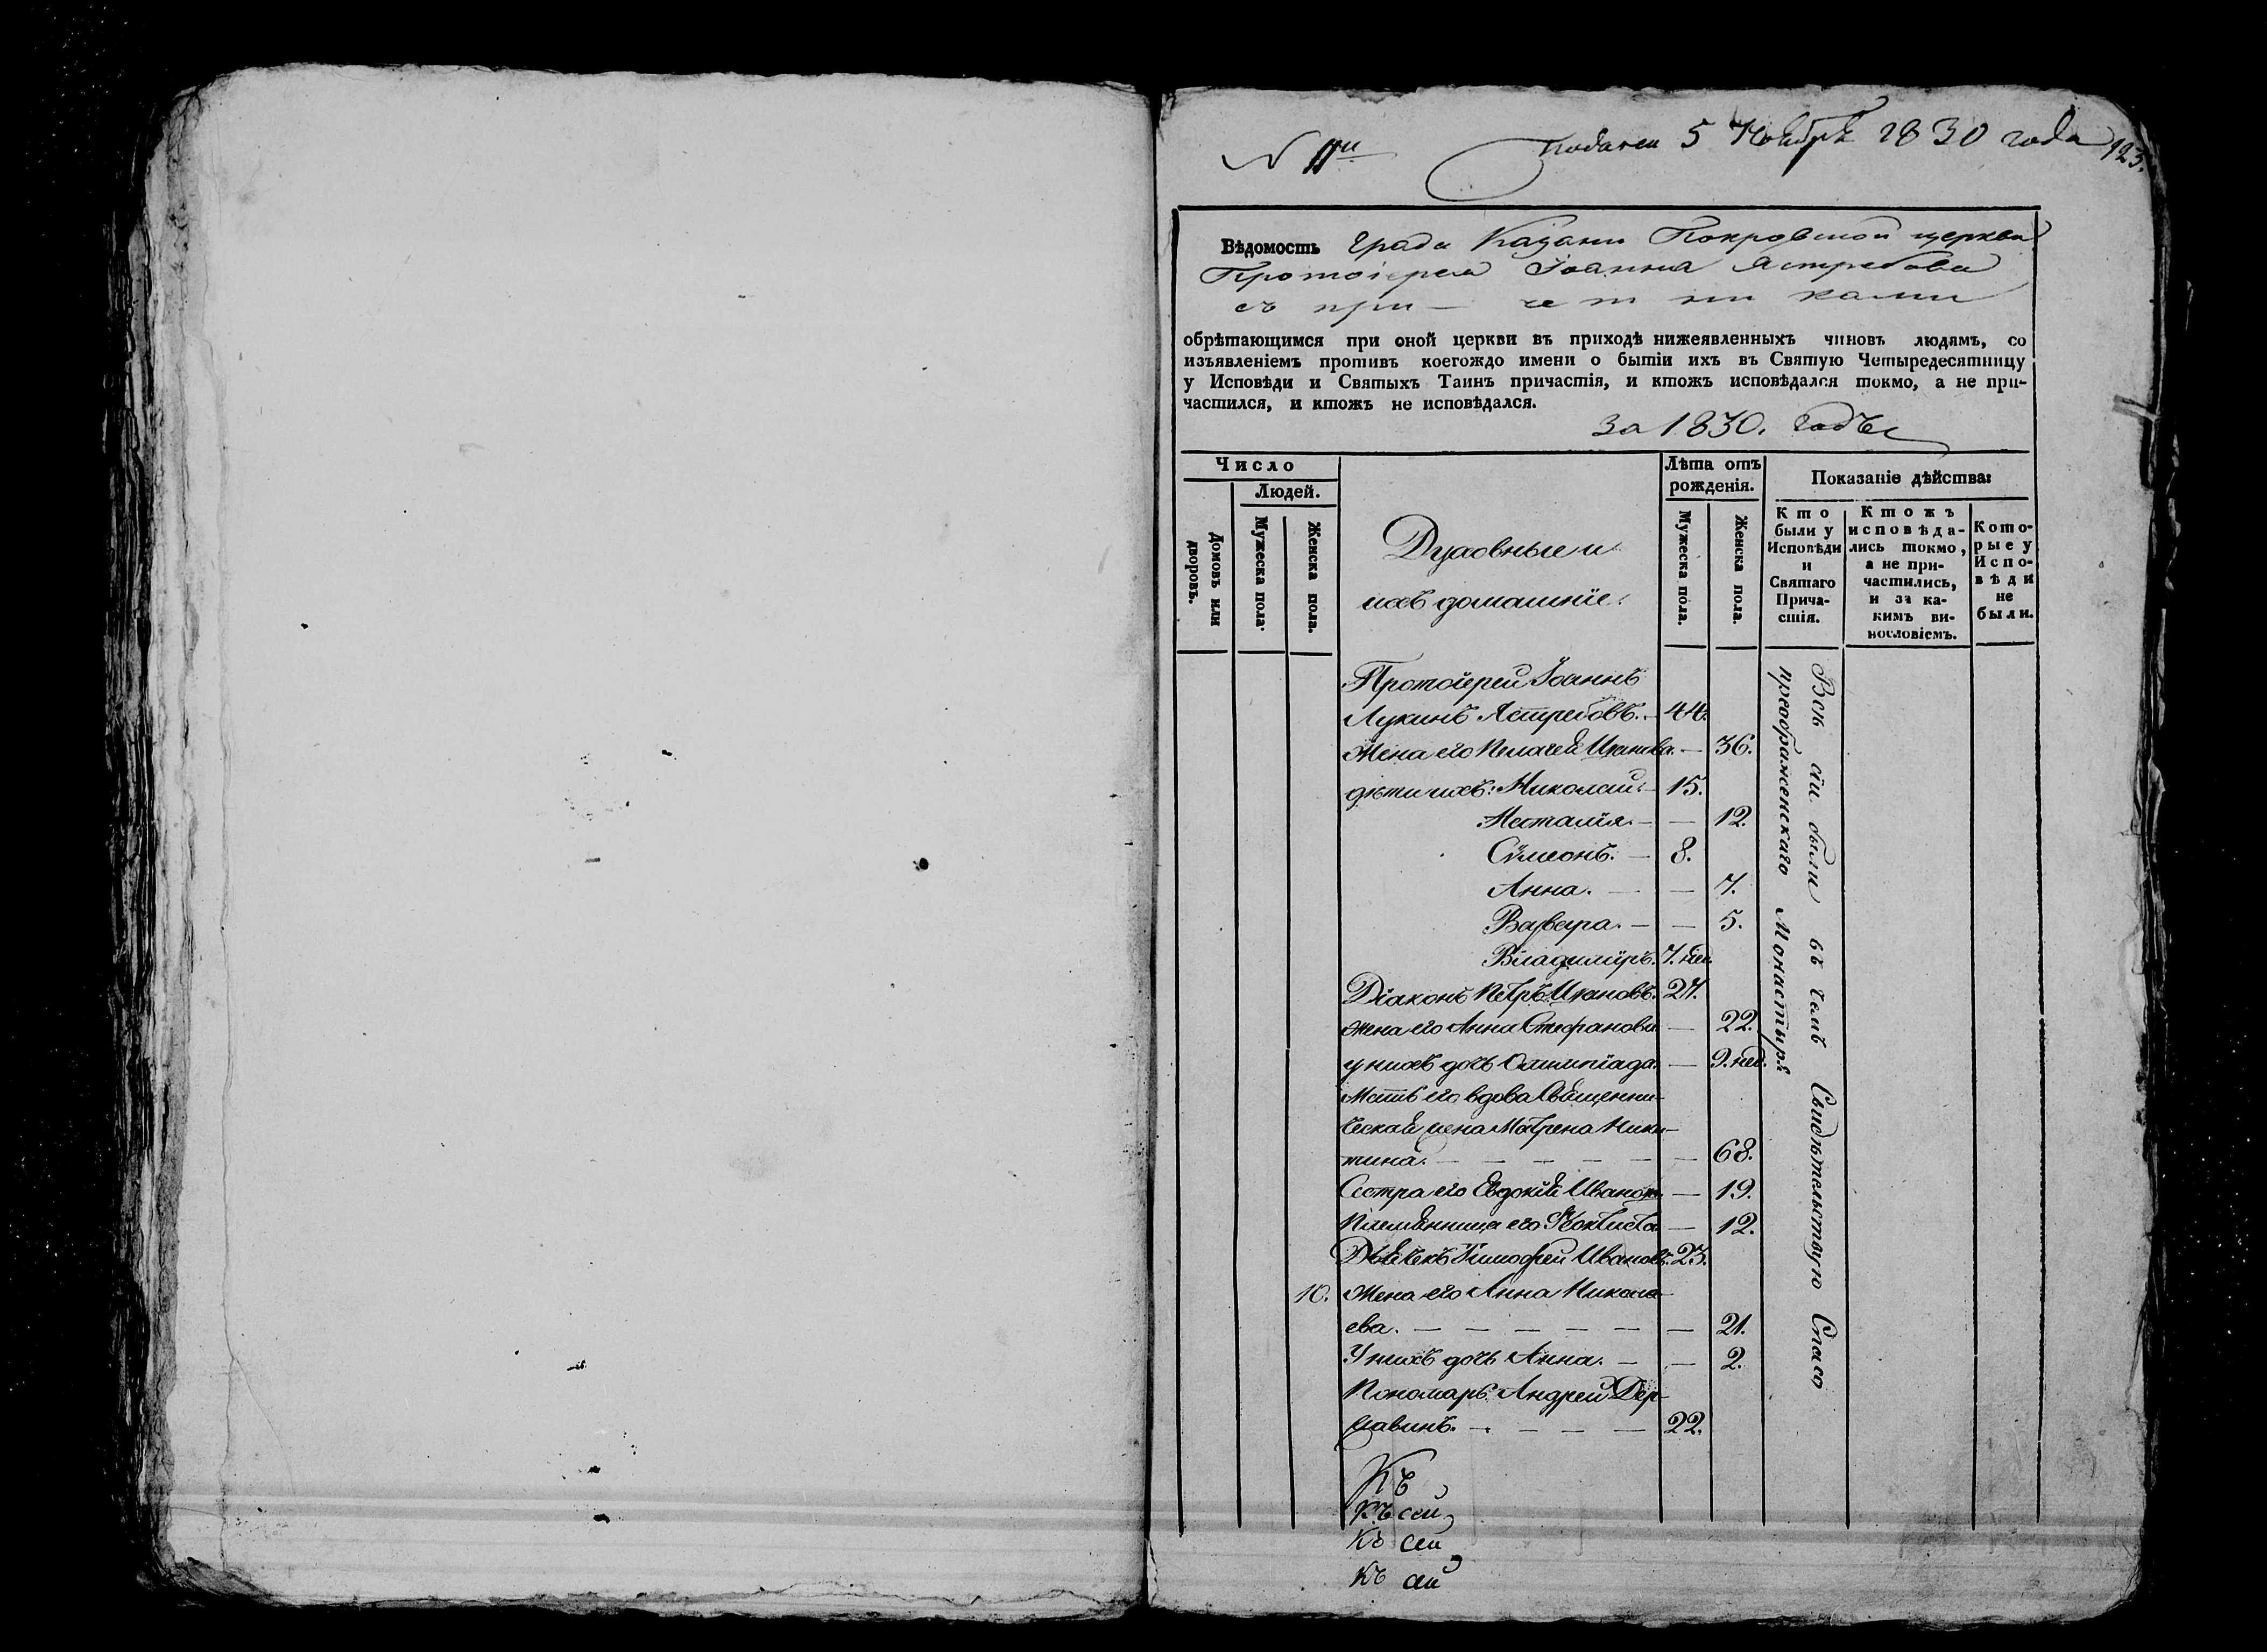 N 11й
подана 5 Ноября 1830 года
123.
Вѣдомость Града Казани Покровской церкви
Протоіерея Іоанна Ястребова
съ при- четниками
обрѣтающимся при оной церкви въ приходѣ нижеявленныхъ чиновъ людямъ, со
изъявленіемъ противъ коегождо имени о бытіи ихъ въ Святую Четыредесятницу
у Исповѣди и Святыхъ Таинъ причастія, и ктожъ исповѣдался токмо, а не при-
частился, и ктожъ не исповѣдался.
за 1830. годъ
Число
Людей.
Домовъ или дворовъ.
Мужеска пола.
Женска пола.
Духовные и
ихъ домашніе:
Лѣта отъ
рожденія.
Мужеска пола.
Женска пола.
Показаніе дѣйства:
Кто
были у
Исповѣди
и
Святаго
Прича-
стія.
Ктожъ
исповѣда-
лись токмо,
а не при-
частились,
и за ка-
кимъ ви-
нословіемъ.
Кото-
рые у
Испо-
вѣди
не
были.
Протоіерей Іоаннъ
Лукинъ Ястребовъ. - 44.
Жена его Пелагея Иванова. — 36.
дѣти ихъ: Николай. - 15.
Наталія. - — 12.
Сѷмеонъ. — 8.
Анна. — — 7.
Варвара. - — 5.
Владиміръ. 7. нед.
Діаконъ Петръ Ивановъ. 27.
жена его Анна Стефанова — 22.
у нихъ дочь Олимпіада. — 9. нед.
Мать его вдова Священни-
ческая жена Матрена Ники-
тина. — — — — — — 68.
Сестра его Евдокія Иванова — 19.
Племянница его Феоктиста — 12.
Дьячекъ Тимофей Ивановъ. 23.
10. Жена его Анна Никола-
ева. — — — — — — 21.
У нихъ дочь Анна. — — 2.
Пономарь Андрей Дер-
жавинъ. — — — — 22.
Всѣ сіи были въ чемъ Свидѣтельствую Спасо
преображенскаго Монастыря
Къ
Къ сей
Къ сей
Къ сей